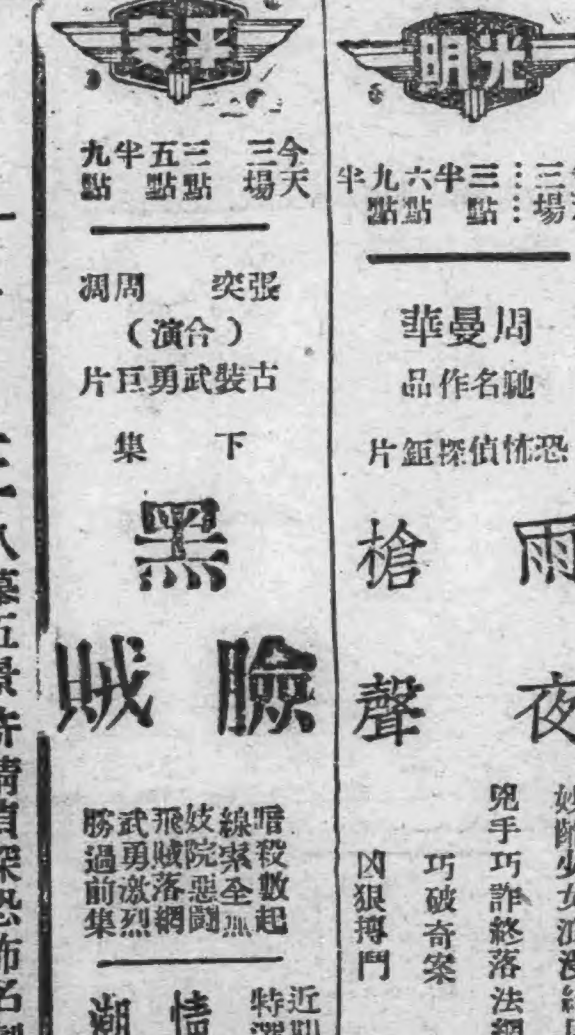 光明
三場
三點半
六點
九點半
周曼華
馳名作品
恐怖偵探鉅片
雨夜槍聲
兇手巧詐終落法
巧破奇案
凶狠搏鬥
平安
今天三場
三點
五點半
九點
張奕 周凋
（合演）
古裝武勇巨片
下集
黑
臉賊
暗殺數起
線索全無
妓院惡鬪
飛賊落網
武勇激烈
勝過前集
情潮
幕五景奇情偵探恐怖名